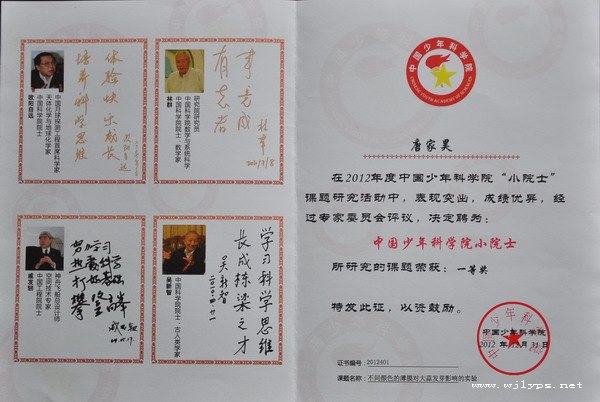 体验快乐成长
培养科学思维
欧阳自远
中国月球探测工程首席科学家
天体化学与地球化学家
中国科学院院士
欧阳自远
有志者
事竟成
林群
研究院研究员
中国科学院数学与系统科学
中国科学院院士、数学家
林群
努力学习
热爱科学
打好基础
攀登高峰
戚发轫
神舟飞船总设计师
空间技术专家
中国工程院院士
戚发轫
学习科学思维
长成栋梁之才
吴新智
中国科学院院士、古人类学家
吴新智
中国少年科学院
唐家昊
在2012年度中国少年科学院“小院士”
课题研究活动中，表现突出，成绩优异，经
过专家委员会评议，决定聘为：
中国少年科学院小院士
所研究的课题荣获：一等奖
特发此证，以资鼓励。
中国少年科学院
2012 年 12月 31日
证书编号：2012401
课题名称：不同颜色的薄膜对大蒜发芽影响的实验
www.wjlyps.net